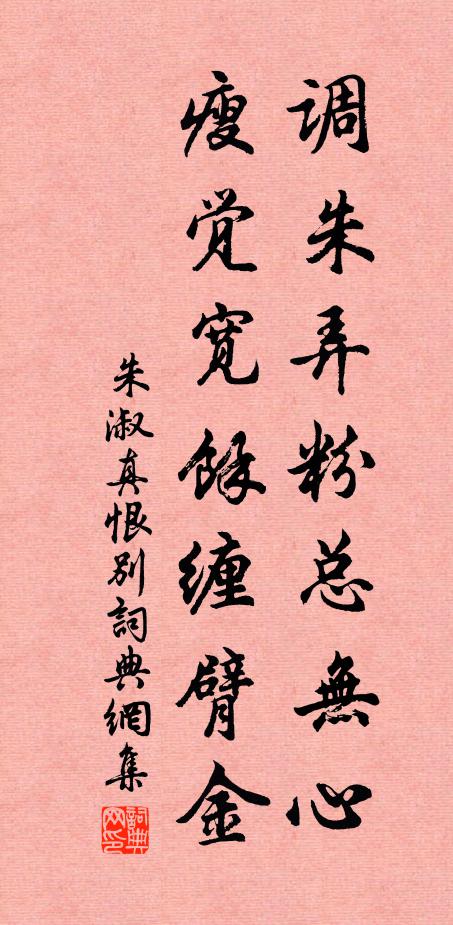 调朱弄粉总無心
瘦觉宽馀缠臂金
朱淑真恨别詞典網集
詞典网印